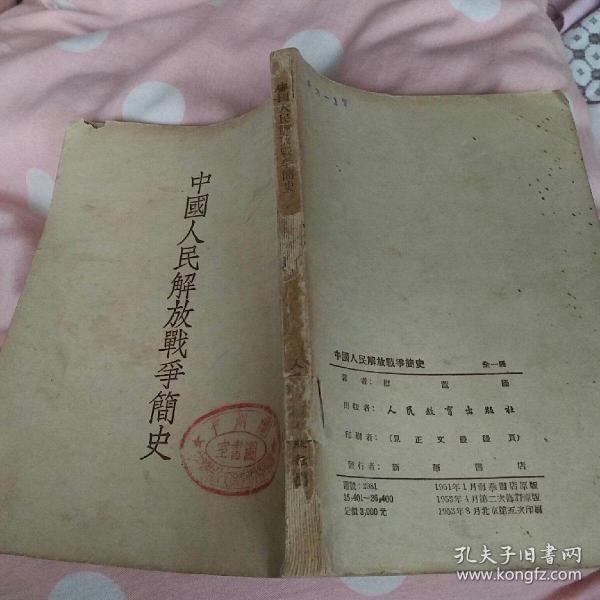 中國人民解放戰爭簡史
人民解放戰爭簡史
圖書室
中國人民解放戰爭簡史 全一冊
著者:
出版者:人民教育出版社
印刷者:(見正文最後頁)
發行者:新華書店
書號:2981
1951年1月新華書店原版
15,401—26,400
1953年4月第二次修訂原版
定價3,000元
1953年8月北京第五次印刷
孔夫子旧书网
www.kongfz.com